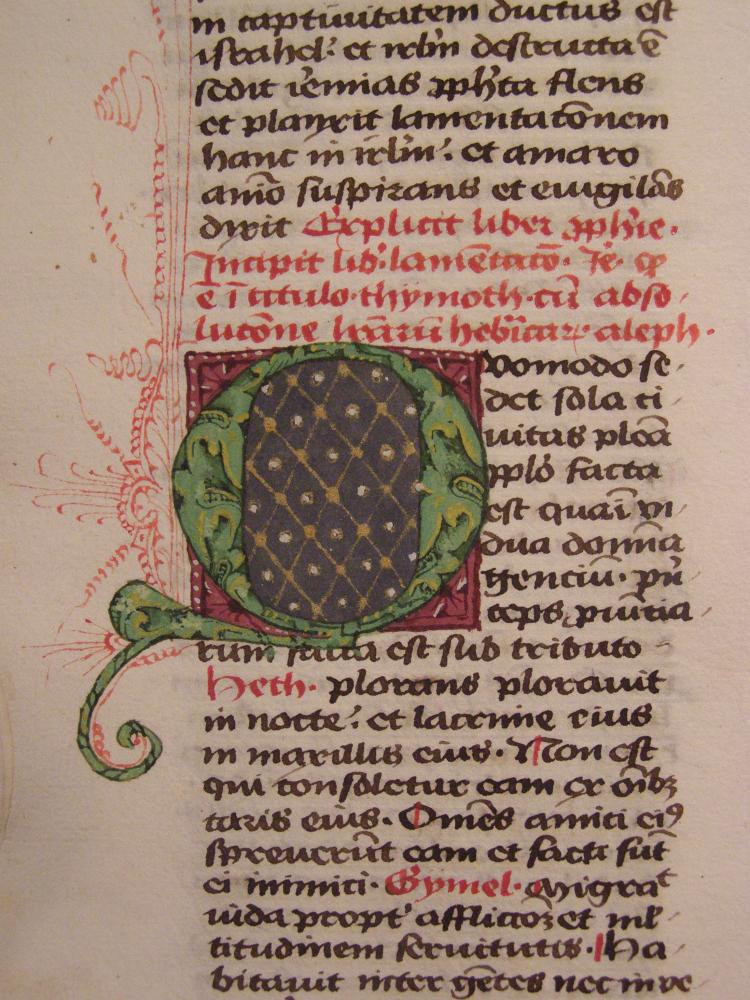 in captiuitatem ductus est
israhel: et irl̄m destructa ē
sedit ier̄mias ꝓph̄ta flens
et planxit lamentatōnem
hanc in irl̄m: et amaro
animo suspirans et euigilās
dixit Explicit liber ꝓphīe·
Incipit lib̛·lamētatō· Je· ꝓ
e ī titulo·thymoth·cū abso
lucōne lr̄arū heb̄icar̄·aleph·
Quomodo se
det sola ci
uitas plēa
pplō facta
est quasi vi
dua domīa
genciū· prī
ceps, ꝓuīcia
rum facta est sub tributo
Heth· plorans plorauit
in nocte: et lacrime eius
in maxillis eius· Non est
qui consoletur eam ex oībꝫ
caris eius· Omēs amici eiꝰ
spreuerūt eam et facti sūt
ei inimici· Gymel· Migrat
iuda propt' afflictōꝫ et ml̄
titudinem seruitutis· Ha
bitauit inter gētes nec inue